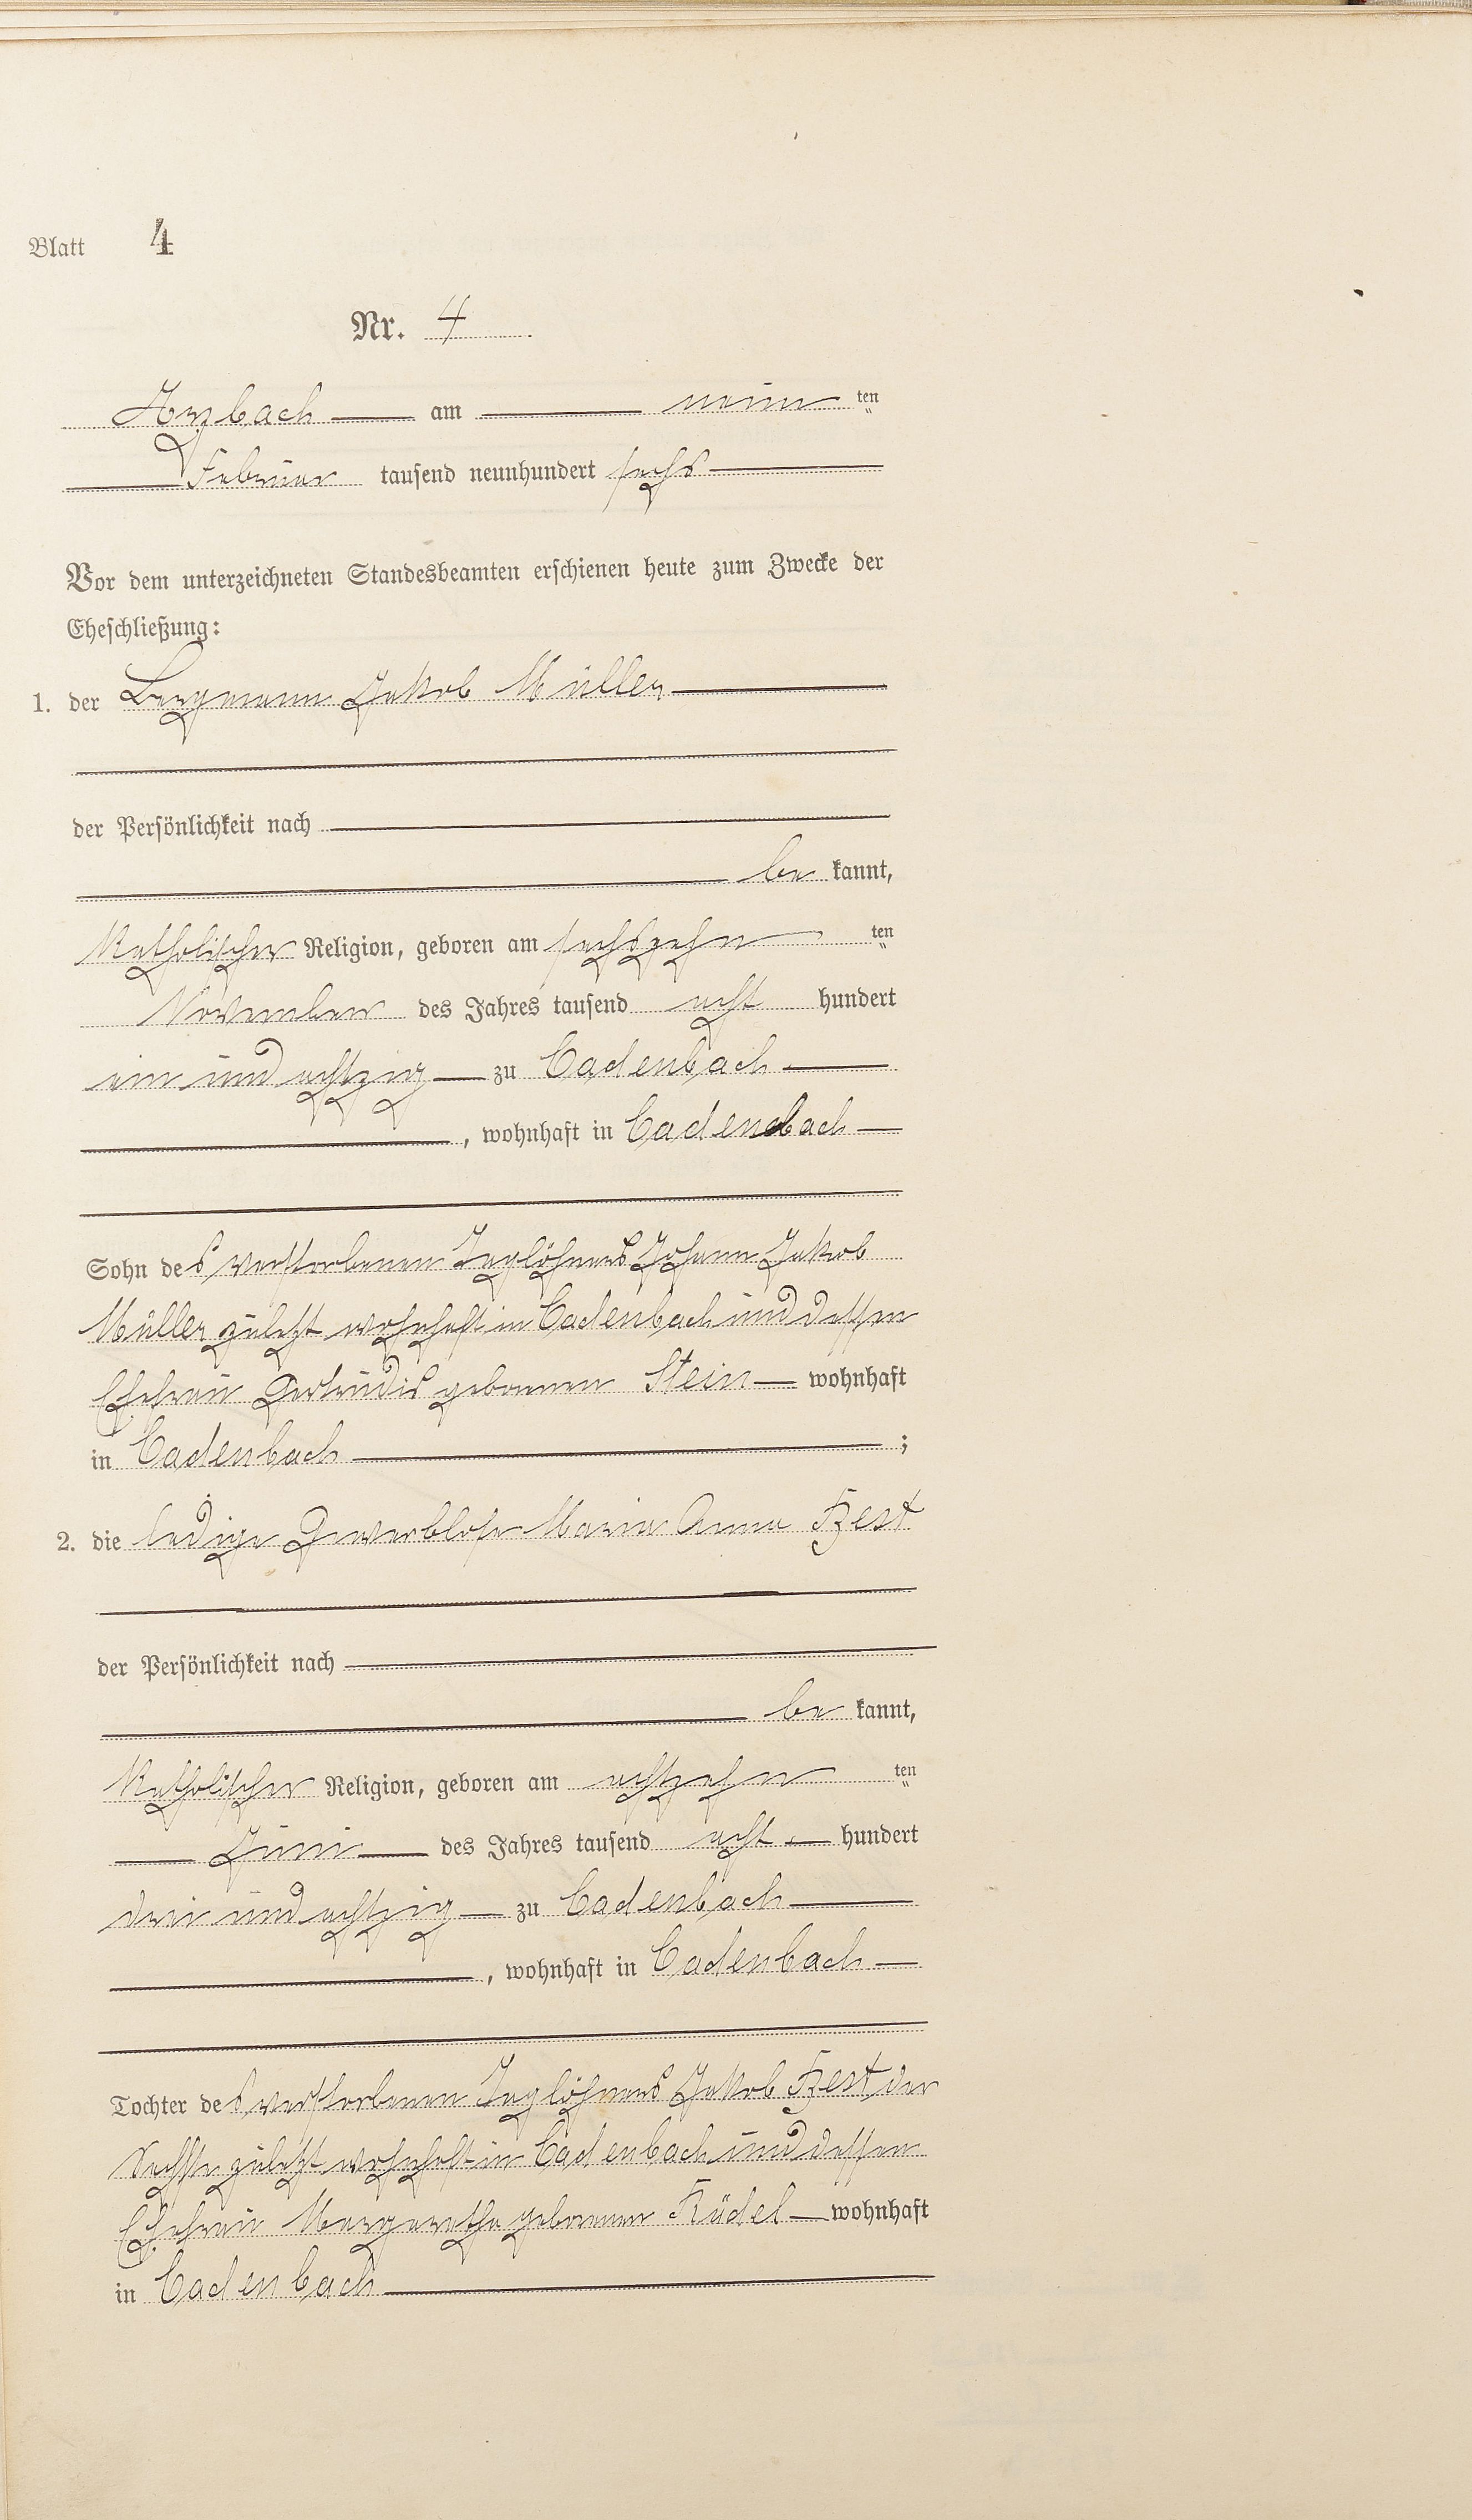 Blatt 4
Nr. 4
Arzbach am neun ten
Februar tausend neunhundert sechs
Vor dem unterzeichneten Standesbeamten erschienen heute zum Zwecke der
Eheschließung:
1. der Bergmann Jakob Müller
der Persönlichkeit nach
be kannt,
Katholischer Religion, geboren am sechszehn ten
November des Jahres tausend acht hundert
ein und achtzig zu Cadenbach
, wohnhaft in Cadenbach
Sohn des verstorbenen Taglöhners Johann Jakob
Müller zuletzt wohnhaft in Cadenbach und dessen
Ehefrau Gertrudis geborenen Stein wohnhaft
in Cadenbach ;
2. die ledige Gewerblose Maria Anna Best
der Persönlichkeit nach
be kannt,
Katholischer Religion, geboren am achtzehn ten
Juni des Jahres tausend acht hundert
drei und achtzig zu Cadenbach
, wohnhaft in Cadenbach
Tochter des verstorbenen Taglöhners Jakob Best der
Sechste zuletzt wohnhaft in Cadenbach und dessen
Ehefrau Margaretha geborenen Küdel wohnhaft
in Cadenbach